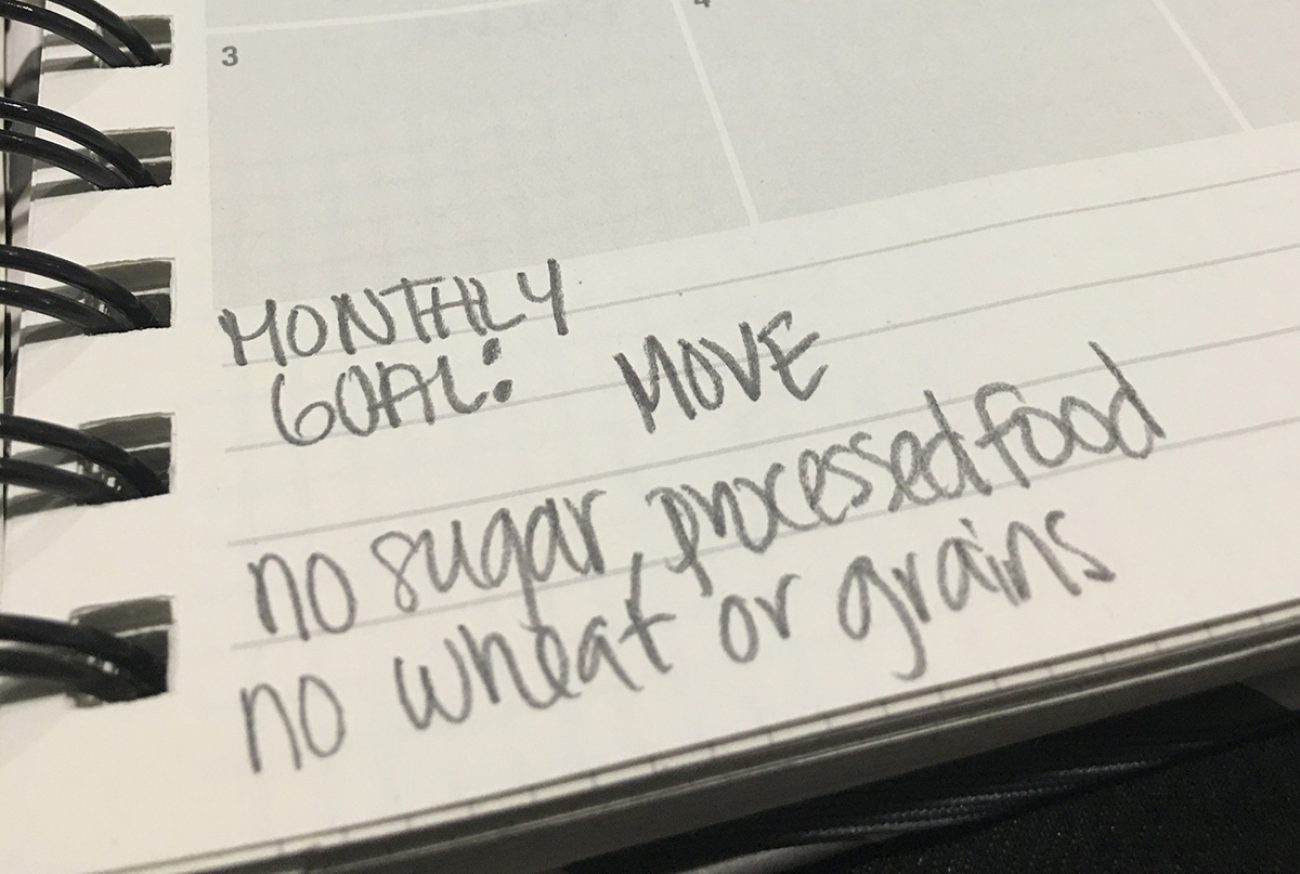 3
4
MONTHLY
GOAL: MOVE
no sugar, processed food
no wheat or grains